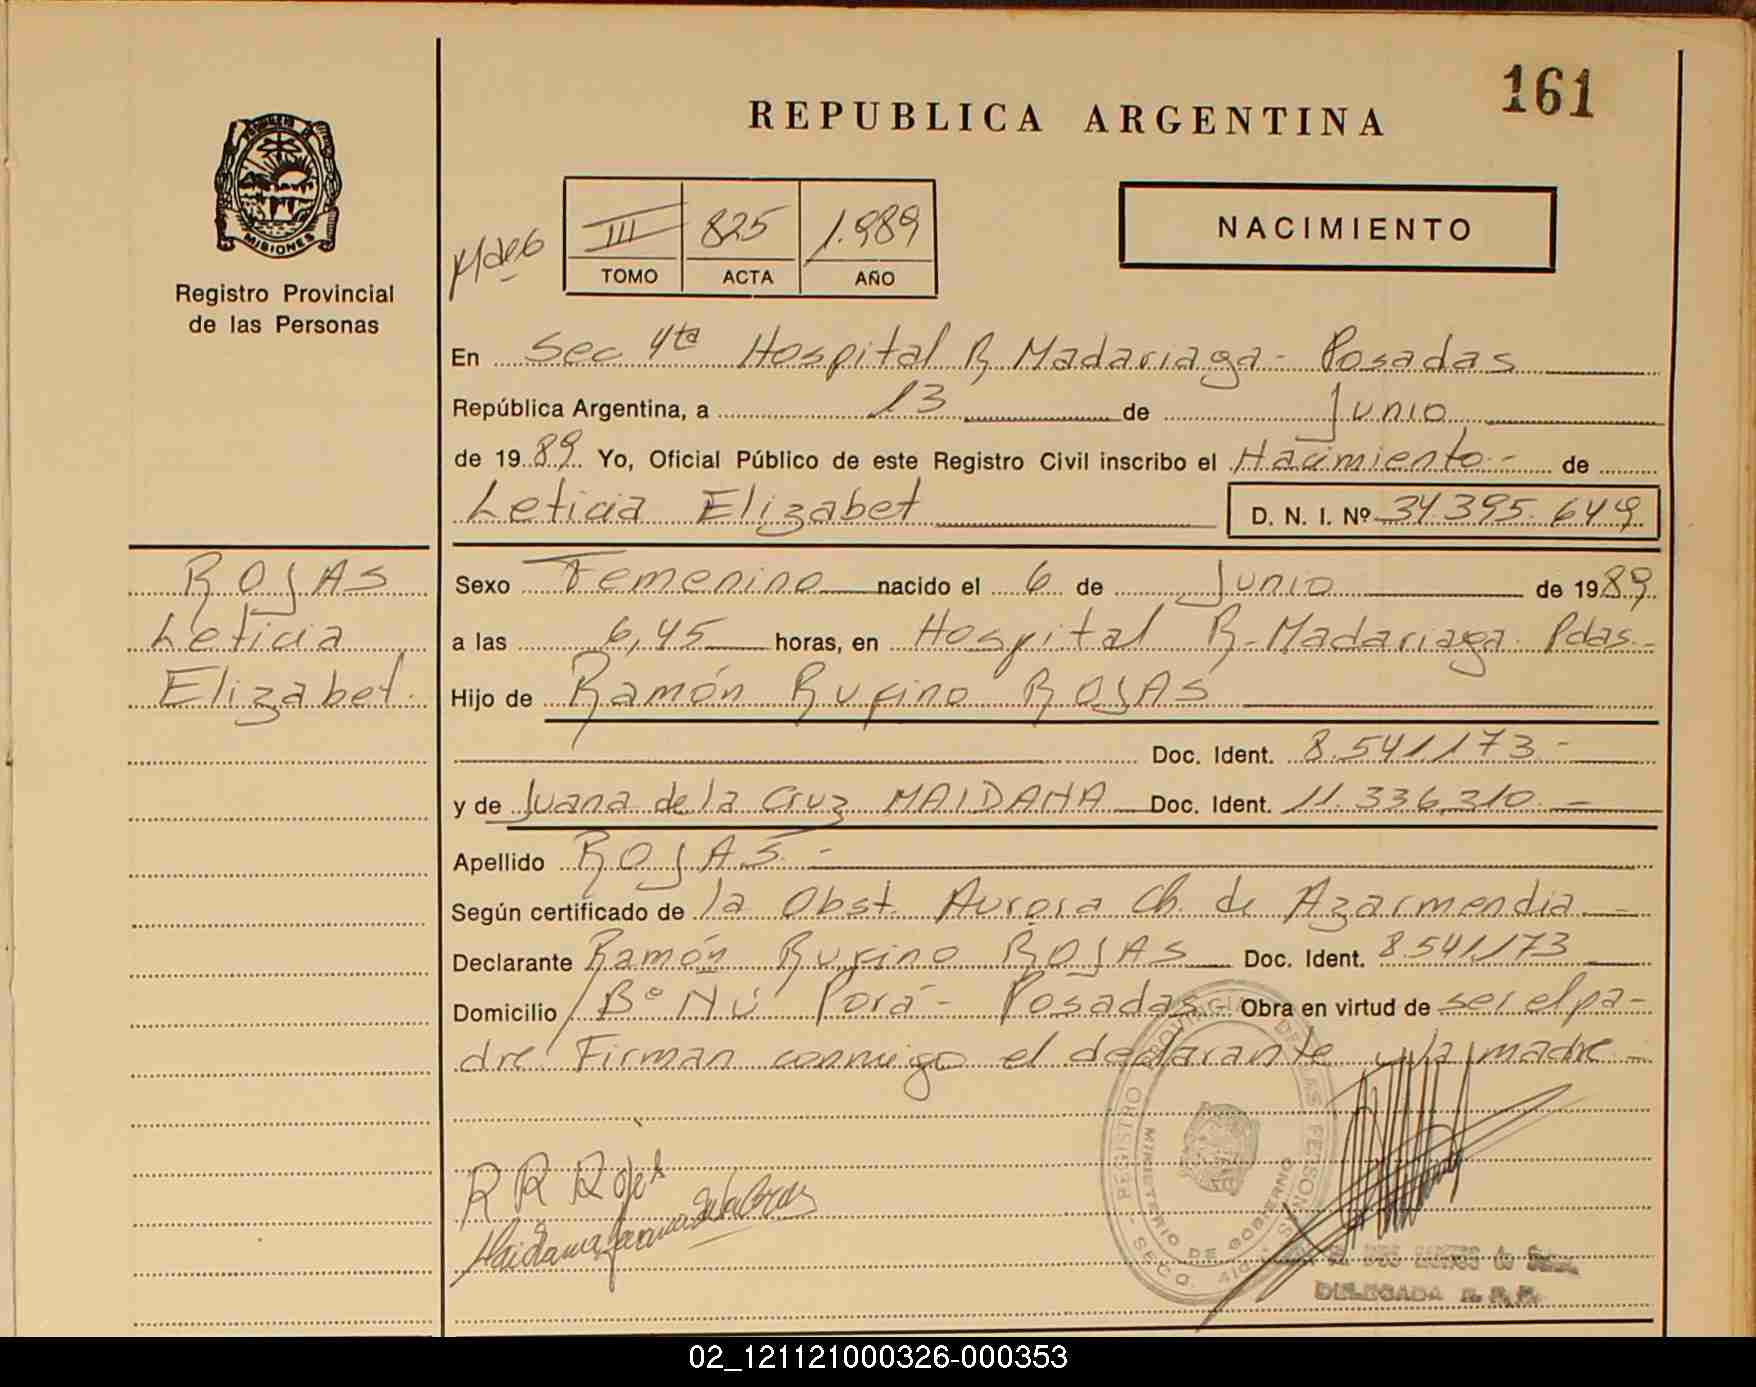 161
REPUBLICA ARGENTINA
MISIONES
Registro Provincial
de las Personas
III 825 1.989
TOMO ACTA AÑO
NACIMIENTO
En Sec 4ta Hospital R Madariaga - Posadas
República Argentina, a 13 de Junio
de 1989 Yo, Oficial Público de este Registro Civil inscribo el Nacimiento - de
Leticia Elizabet D. N. I. Nº 34.395.649
ROJAS
Leticia
Elizabet.
Sexo Femenino nacido el 6 de Junio de 1989
a las 6,45 horas, en Hospital R. Madariaga. Pdas.-
Hijo de Ramón Rufino ROJAS
Doc. Ident. 8.541.173 -
y de Juana de la Cruz MAIDANA Doc. Ident. 11.336.310. -
Apellido ROJAS. -
Según certificado de la Obst. Aurora Ch. de Azarmendia -
Declarante Ramón Rufino ROJAS Doc. Ident. 8.541.173
Domicilio Bº Ñú Porá - Posadas Obra en virtud de ser el pa-
dre. Firman conmigo el declarante y la madre -
R R Rojas
Maidana Juana de la Cruz
REGISTRO PROVINCIAL DE LAS PERSONAS
MINISTERIO DE GOBIERNO
SECC. 4ta
DELEGADA R. P. P.
02_121121000326-000353